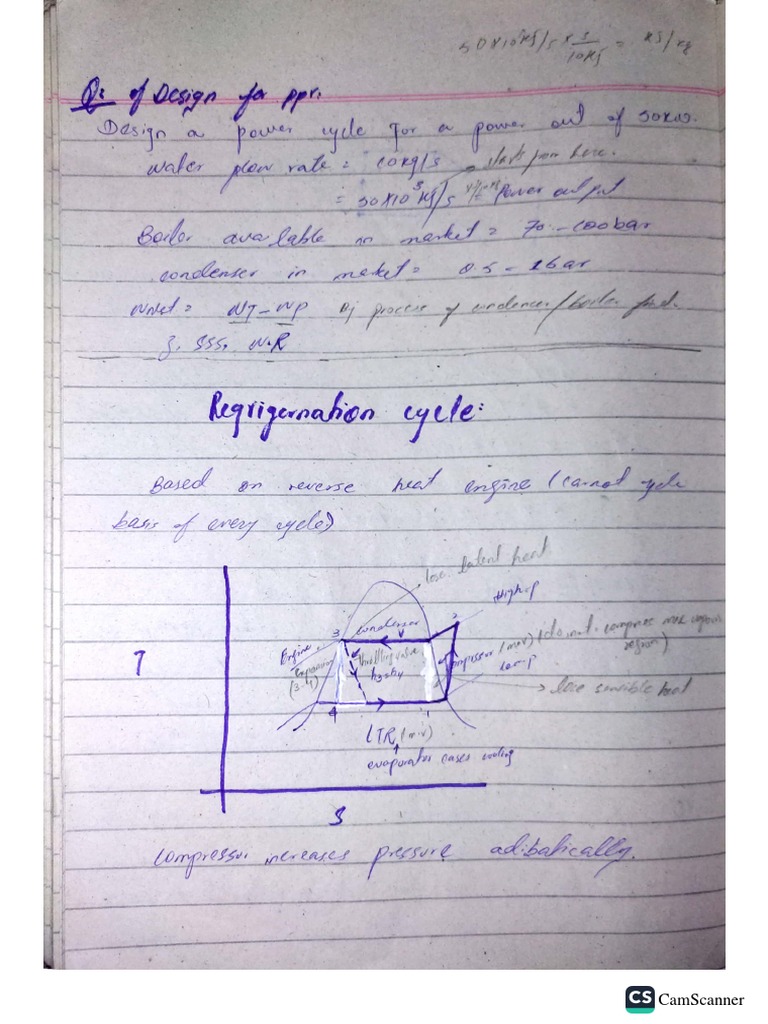 50×10³KJ/s × s/10Kg = KJ/kg
Q: of Design for ppr.
Design a power cycle for a power out of 50KW.
Water flow rate = 10kg/s start from here.
= 50×10³ KJ/s Power output
Boiler available in market = 70 - 100 bar
condenser in market = 0.5 - 1 bar
Wnet = WT - WP process of condenser/boiler
W.R
Regrigernation cycle:
Based on reverse heat engine (carnot cycle
basis of every cycle)
lose latent heat
High-P
2
3 condenser
Engine
expansion
(3-4)
throttling valve
h3=h4
compressor (mov) (do not compress mix region
region)
low-P
lose sensible heat
T
4
1
LTR (mov)
evaporator cases cooling
S
compressor increases pressure adibatically.
CS CamScanner